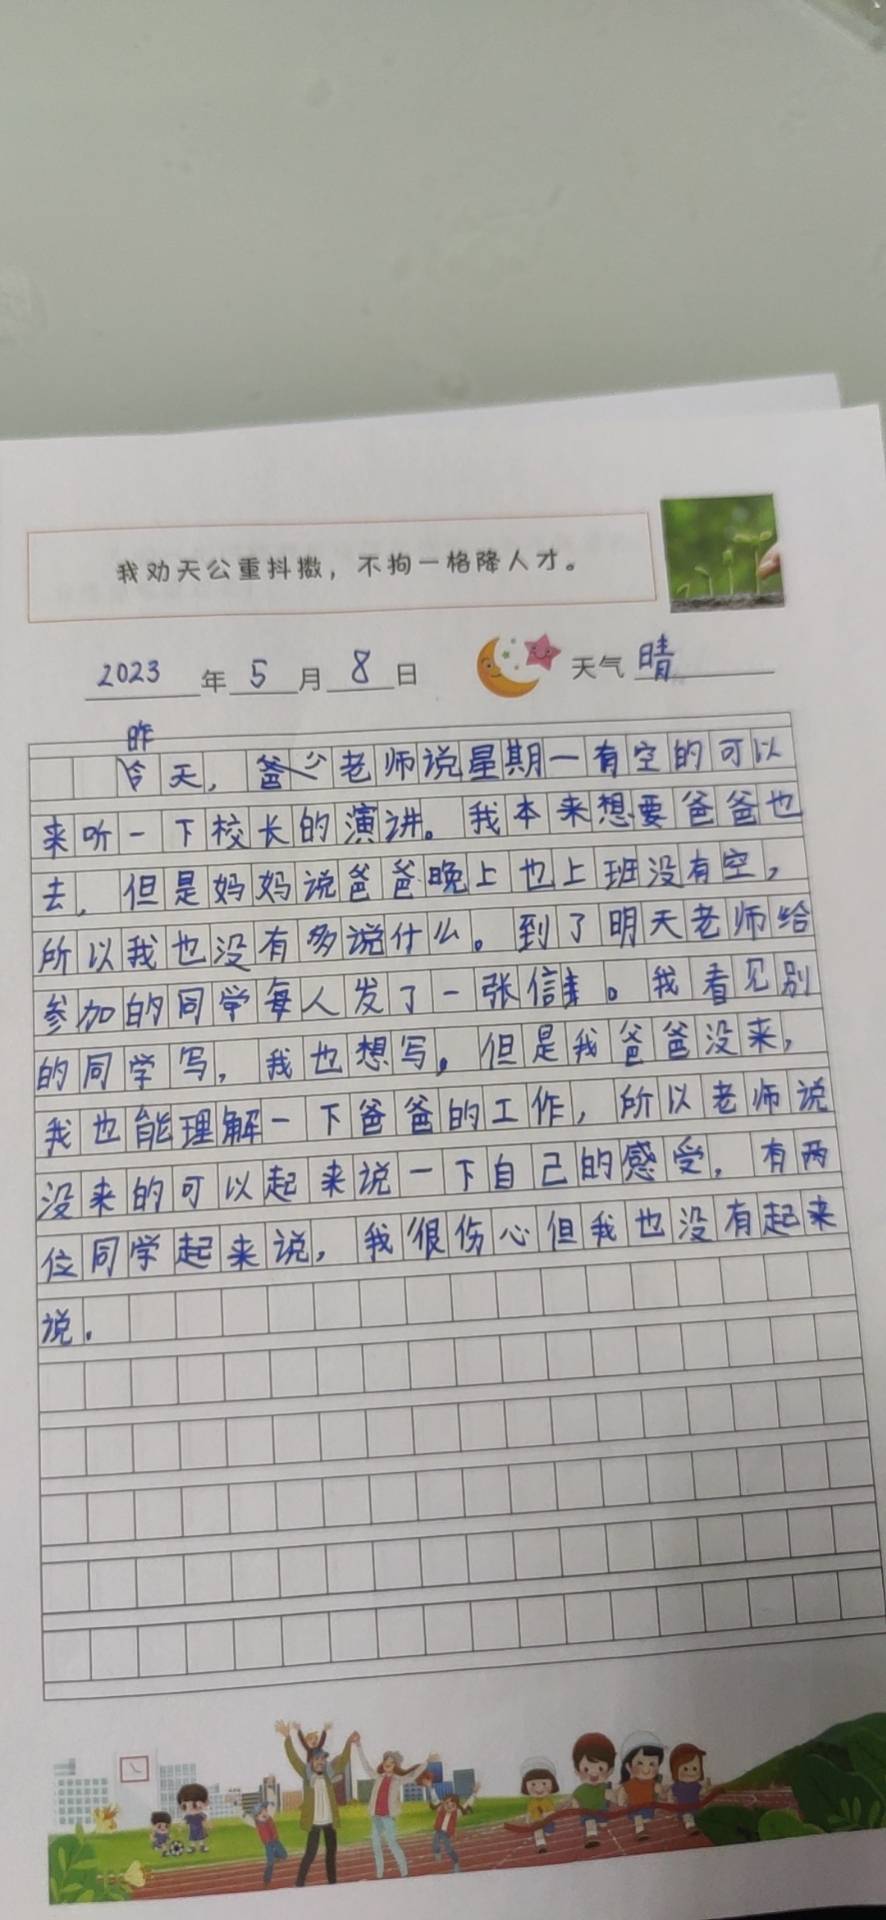 我劝天公重抖擞，不拘一格降人才。
2023年5月8日 天气 晴
昨
今天，爸 老师说星期一有空的可以
来听一下校长的演讲。我本来想要爸爸也
去，但是妈妈说爸爸晚上也上班没有空，
所以我也没有多说什么。到了明天老师给
参加的同学每人发了一张信 。我看见别
的同学写，我也想写，但是我爸爸没来，
我也能理解一下爸爸的工作，所以老师说
没来的可以起来说一下自己的感受，有两
位同学起来说，我很伤心但我也没有起来
说。